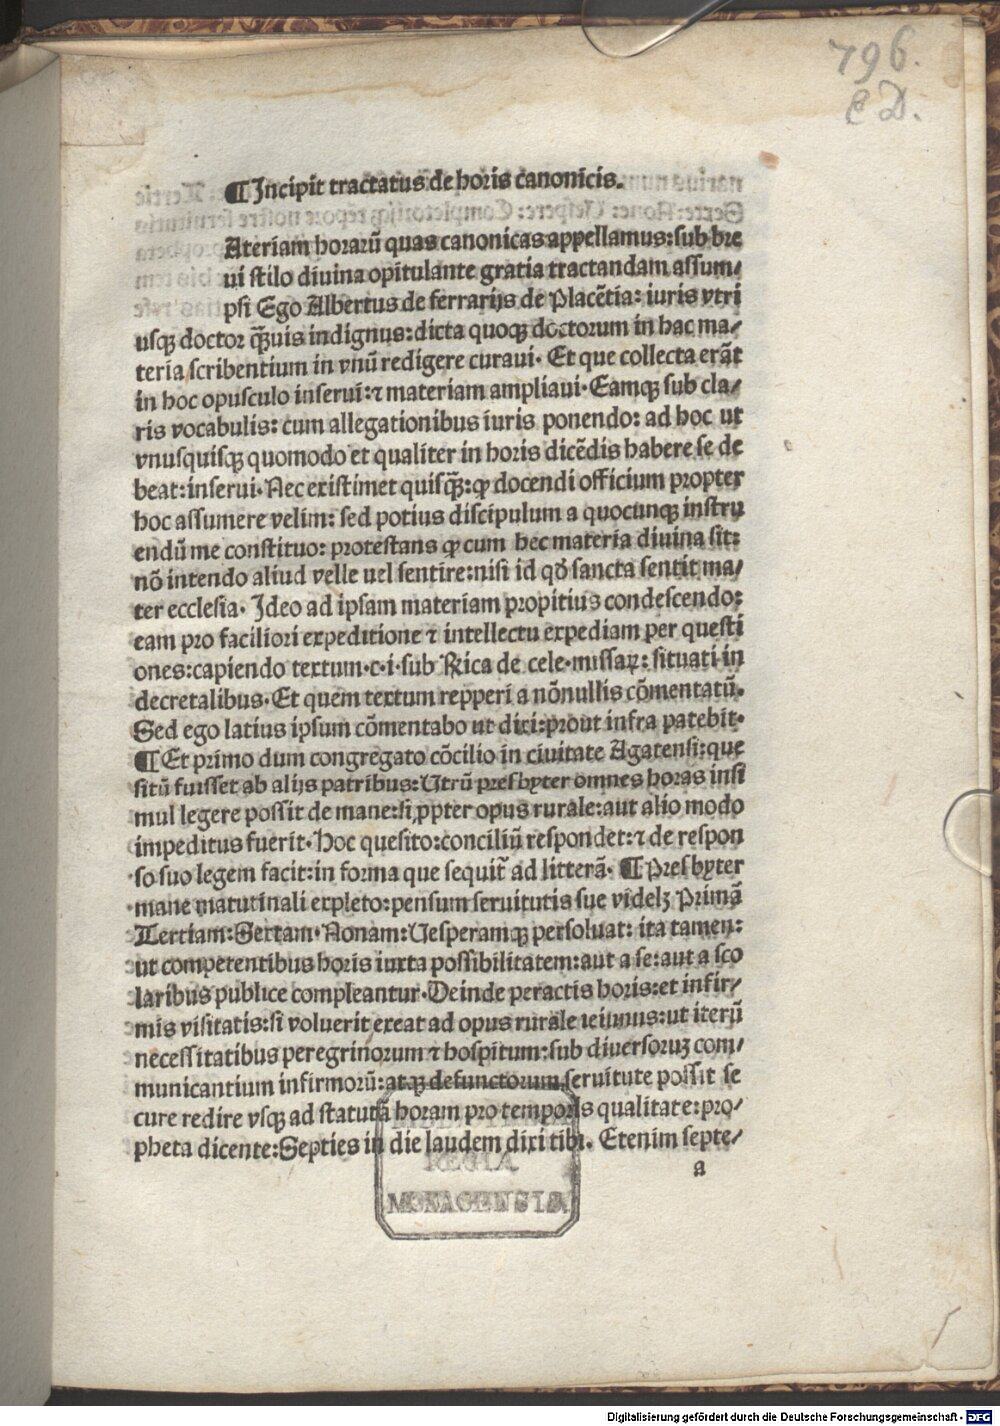 796.
C D.
¶ Incipit tractatus de horis canonicis.
Ateriam horarū quas canonicas appellamus: sub bre
ui stilo diuina opitulante gratia tractandam assum⸗
psi Ego Albertus de ferrarijs de Placētia: iuris vtri
usqꝫ doctor q̄ꝫuis indignus: dicta quoqꝫ doctorum in hac ma⸗
teria scribentium in vnū redigere curaui. Et que collecta erāt
in hoc opusculo inserui: ⁊ materiam ampliaui. Eamqꝫ sub cla⸗
ris vocabulis: cum allegationibus iuris ponendo: ad hoc ut
vnusquisqꝫ quomodo et qualiter in horis dicēdis habere se de
beat: inserui. Nec existimet quisq̄ꝫ: ꝙ docendi officium propter
hoc assumere velim: sed potius discipulum a quocunqꝫ instru
endū me constituo: protestans ꝙ cum hec materia diuina sit:
nō intendo aliud velle uel sentire: nisi id qd̄ sancta sentit ma⸗
ter ecclesia. Ideo ad ipsam materiam propitius condescendo:
eam pro faciliori expeditione ⁊ intellectu expediam per questi
ones: capiendo textum.c.i.sub Rica de cele.missaꝝ: situati in
decretalibus. Et quem textum repperi a nōnullis cōmentatū.
Sed ego latius ipsum cōmentabo ut dixi: prout infra patebit.
¶ Et primo dum congregato cōcilio in ciuitate Agatensi: que
sitū fuisset ab alijs patribus: Utrū presbyter omnes horas insi
mul legere possit de mane: si ꝓpter opus rurale: aut alio modo
impeditus fuerit. Hoc quesito: conciliū respondet: ⁊ de respon
so suo legem facit: in forma que sequit̄ ad litterā. ¶ Presbyter
mane matutinali expleto: pensum seruitutis sue videlꝫ Primā
Tertiam: Sextam. Nonam: Uesperamqꝫ persoluat: ita tamen:
ut competentibus horis iuxta possibilitatem: aut a se: aut a sco
laribus publice compleantur. Deinde peractis horis: et infir⸗
mis visitatis: si voluerit exeat ad opus rurale ieiunus: ut iterū
necessitatibus peregrinorum ⁊ hospitum: sub diuersoruꝫ com⸗
municantium infirmorū: atqꝫ defunctorum seruitute possit se
cure redire vsqꝫ ad statutā horam pro temporis qualitate: pro⸗
pheta dicente: Septies in die laudem dixi tibi. Etenim septe⸗
a
REGIA
MONACENSIS
Digitalisierung gefördert durch die Deutsche Forschungsgemeinschaft - DFG